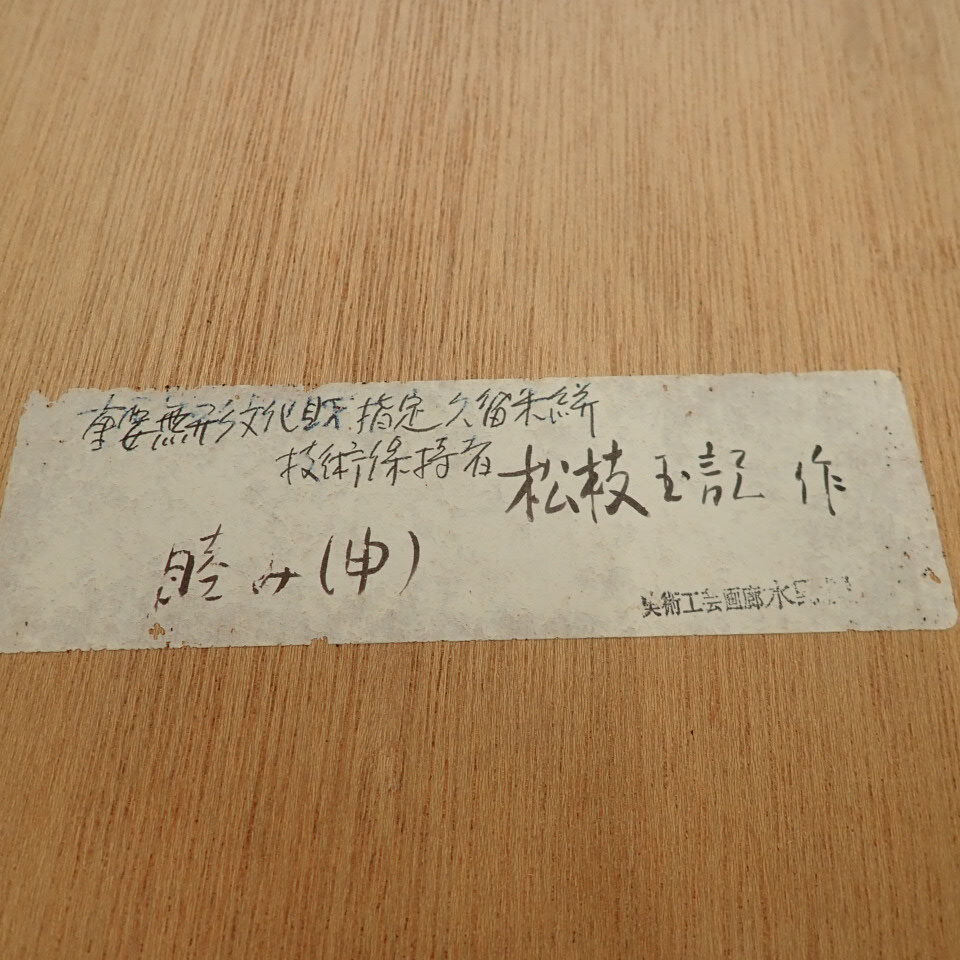 重要無形文化財 指定 久留米絣
技術保持者 松枝玉記 作
睦み(申)
美術工芸画廊